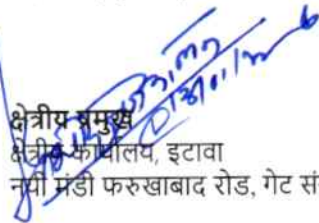 क्षेत्रीय प्रमुख
क्षेत्रीय कार्यालय, इटावा
नयी मंडी फरुखाबाद रोड, गेट सं